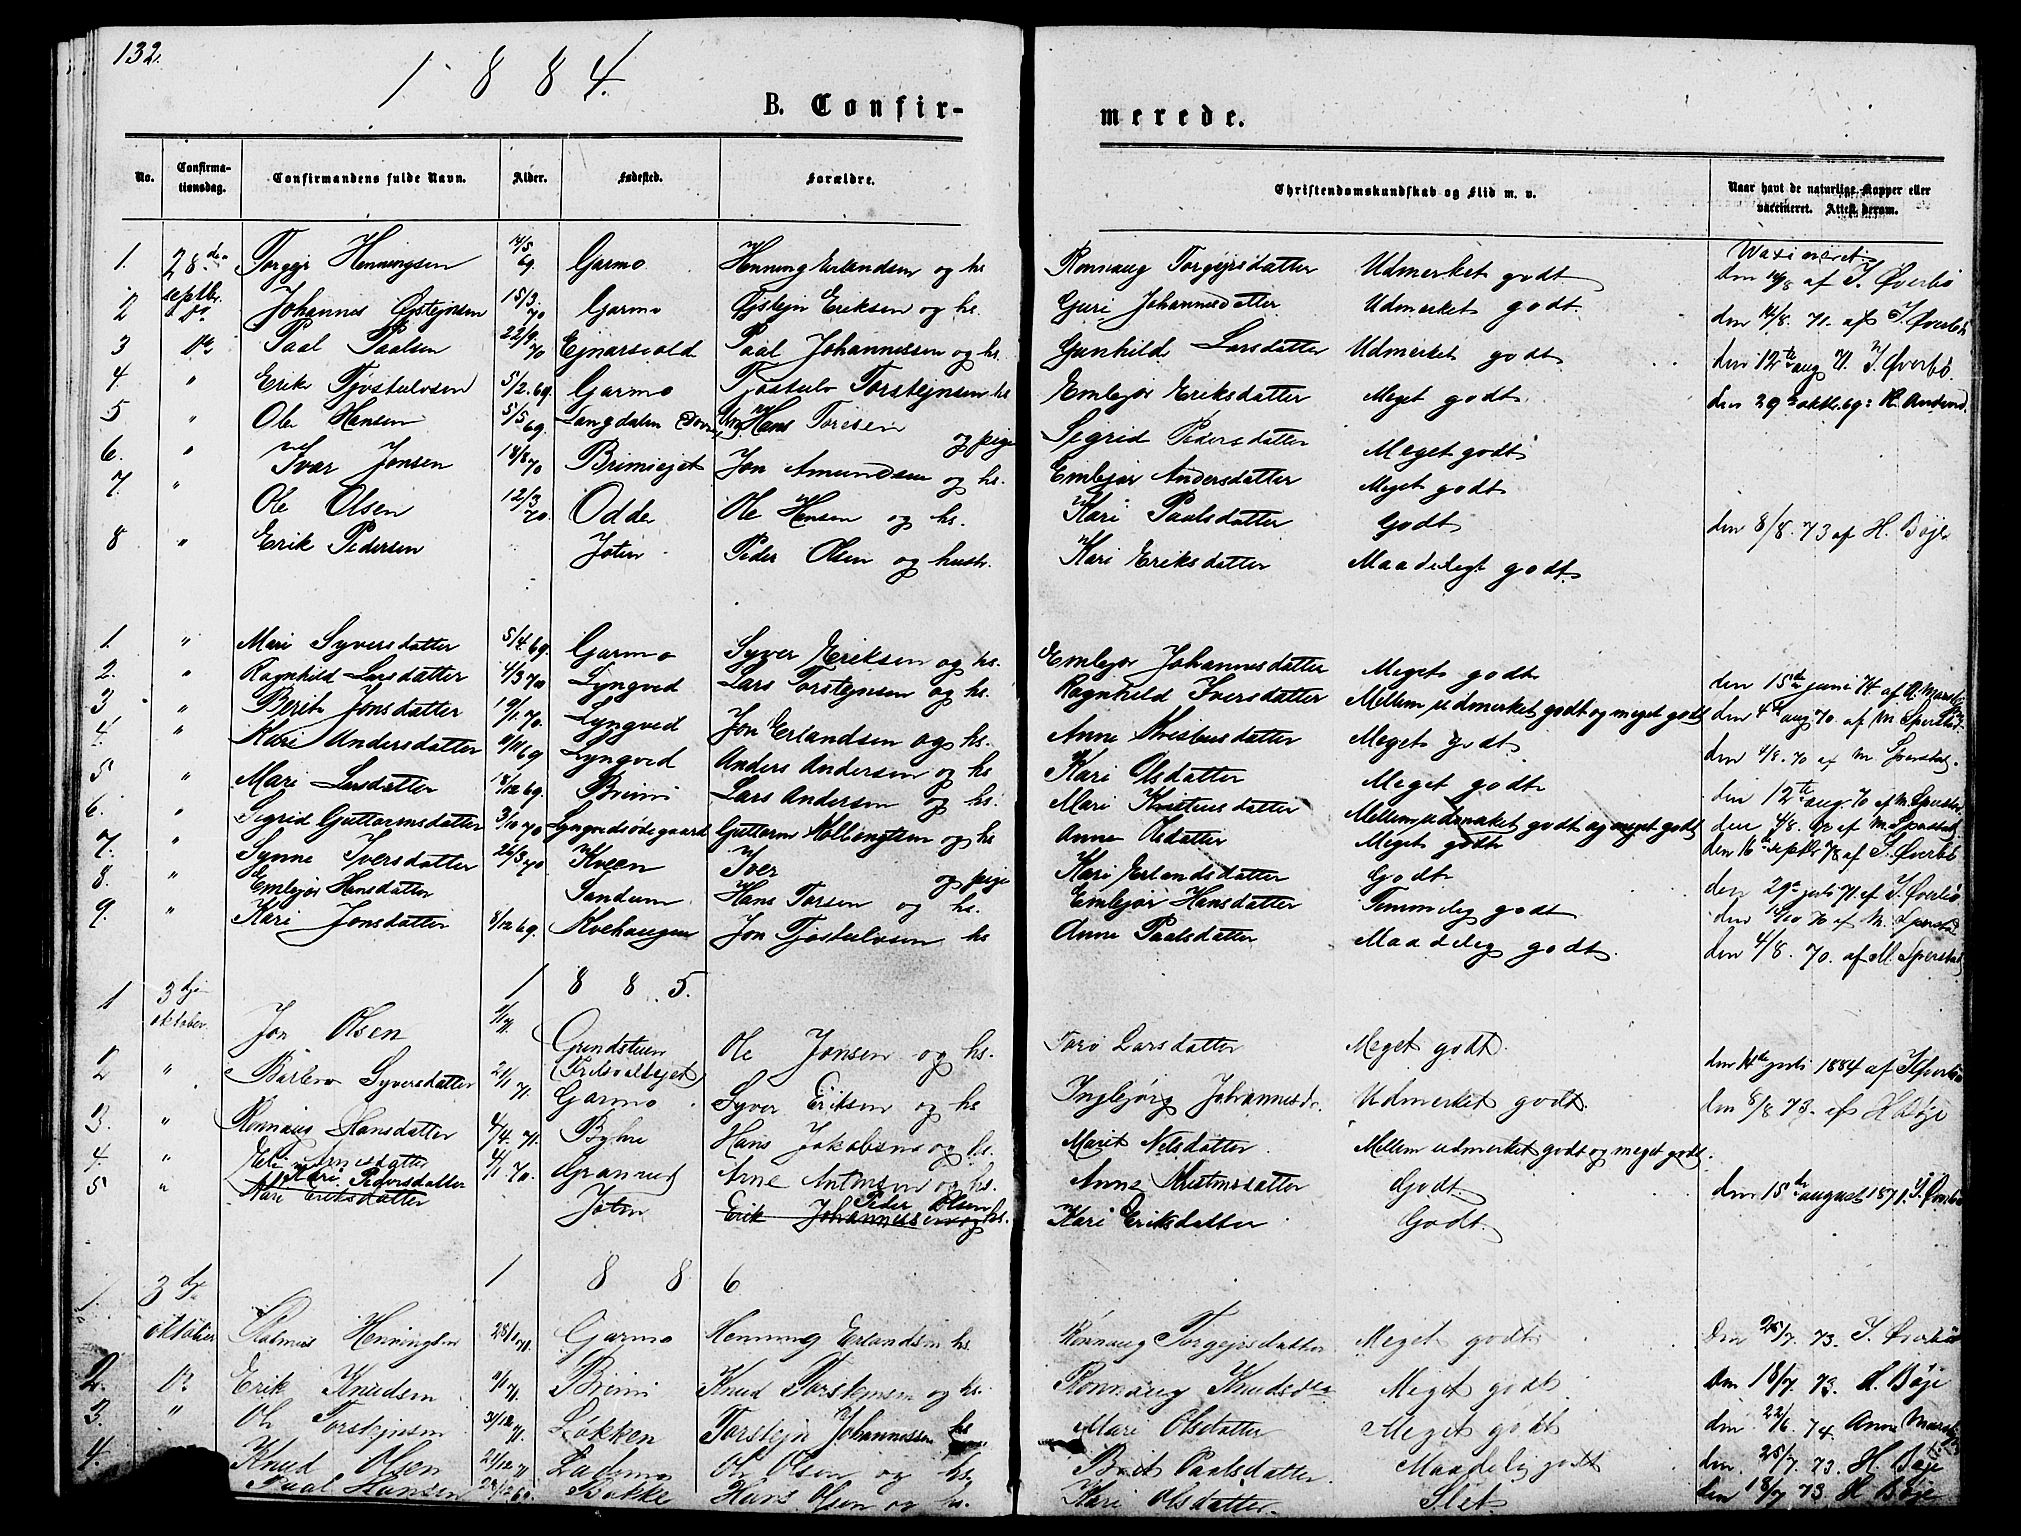 132.
1 8 8 4.
B. Confir-
merede.
No. Confirma-tionsdag. Confirmandens fulde Navn. Alder. Fødested. Forældre. Christendomskundskab og Flid m. v. Naar havt de naturlige Kopper eller vaccineret. Attest derom.
1. 28de septbr. Torgejr Henningsen 14/5 69. Garmo Henning Erlandsen og hs Rønnaug Torgejrsdatter Udmerket godt den 14/8 af I. Øverbø
2 Do Johannes Østejnsen 15/3 70 Garmo Østejn Eriksen og hs. Guri Johannesdatter Udmerket godt. den 14/8. 71. af I. Øverbø
3 Do Paal Paalsen 22/9 70 Ejnarsvold Paal Johannessen og hs. Gunhild Larsdatter Udmerket godt den 12te aug 71. I. Øverbø.
4. " Erik Tjøstulvsen 5/2. 69. Garmo Tjøstulv Torstejnsen hs Embejør Eriksdatter Meget godt. den 29de oktbr. 69:
5 " Ole Hansen 5/5 69. Langdalen Hans Toresen og pige Segrid Pedersdatter Meget godt
6. " Ivar Jonsen 18/8 70 Brimiejet Jon Amundsen og hs. Embejør Andersdatter Meget godt
7. " Ole Olsen 12/3 70. Odden Ole Hansen og hs. Kari Paalsdatter Godt
8 " Erik Pedersen Joten Peder Olsen og hustr. Kari Eriksdatter Maadeligt godt. den 8/8. 73 af H. Bøje
1. " Mari Syversdatter 5/4. 69. Garmo Syver Eriksen og hs. Embejør Johannesdatter Meget godt
2. " Ragnhild Larsdatter 4/3 70 Lyngved Lars Torstejnsen og hs. Ragnhild Iversdatter Mellem udmerket godt og meget godt den 15de juni 74. af
3 " Berit Jonsdatter 19/1. 70. Lyngved Jon Erlandsen og hs. Anne Meget godt den 4de aug 70. af M. Sperstad.
4. " Kari Andersdatter 69 Lyngved Anders Andersen og hs Kari Olsdatter Meget godt den 4/8. 70 af M. Sperstad.
5 " Mari Larsdatter 18/12 69. Brimi Lars Andersen og hs. Mari Mellem udmerket godt og meget godt den 12te aug. 70 af M. Sperstad
6. " Segrid Guttormsdatter 3/10 70 Lyngvedsødegaard Guttorm og hs Anne Olsdatter Meget godt den 4/8. af M. Sperstad.
7. " Synne Iversdatter 26/3 70 Kveen Iver og pige Kari Erlandsdatter Godt. den 16de septbr 78 af I. Øverbø
8. " Embejør Hansdatter Sandum Hans Torsen og hs. Embejør Hansdatter Temmelig godt den 29de juli 71. af I. Øverbø.
9. " Kari Jonsdatter 8/12 69. Kvehaugen Jon Tjøstulvsen hs Anne Paalsdatter Maadelig godt. den 4/8. 70. af M. Sperstad
1 8 8 5.
1 3dje oktober. Jon Olsen Grindstuen (Fritsvoldejet) Ole Jonsen og hs. Toro Larsdatter Meget godt. den 14de juli 1884 af I. Øverbø
2 " Barbro Syversdatter 21/1 71. Garmo. Syver Eriksen og hs Ingebjørg Johannesdr. Udmerket godt. den 8/8 73. af H. Bøje
3. " Rønnaug Hansdatter 4/4. 71. Byhre Hans Jakobsen og hs. Marit Nelsdatter. Mellem udmerket godt og meget godt.
4. " Arnesdatter 4/1 70. Granrud Arne Antonsen og hs. Anne Godt. den 15de august 1871. I. Øverbø
5 " Kari Pedersdatter Kari Eriksdatter Joten Peder Olsen Erik Johannessen og hs. Kari Eriksdatter Godt.
1 8 8 6
1. 3dje oktober Rasmus Henningsen 71. Garmo Henning Erlandsen hs Rønnaug Torgejrsdatter Meget godt. Den 25/7. 73. I. Øverbø
2. Do Erik Knudsen 71. Brimi Knud Torstejnsen og hs. Rønnaug Knudsdtr Meget godt Den 18/7. 73. H. Bøje
3. " Ole Torstejnsen 71. Løkken Torstejn Johannessen hs Mari Olsdatter Meget godt den 22/6. 74.
4. Knud Olsen 71 Ladsmo Ole Olsen og hs. Brit Paalsdatter. Maadelig godt den 25/7. 73. H. Bøje
Paal Hansen Bakke Hans Olsen og hs. Kari Olsdatter. Slet den 18/7 73. H. Bøje